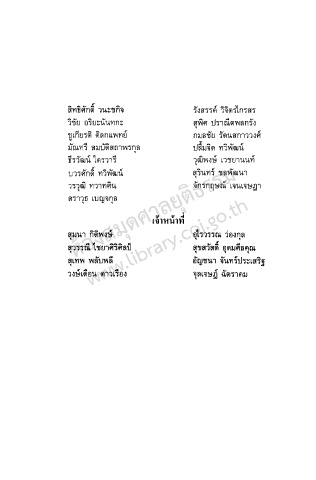 สิทธิศักดิ์ วนะชกิจ
รังสรรค์ วิจิตรไกรสร
วิชัย อริยะนันทกะ
สุพิศ ปราณีตพลกรัง
ชูเกียรติ ดิลกแพทย์
กมลชัย รัตนสกาววงศ์
มัณทรี สมบัติสถาพรกุล
ปลื้มจิต ทวิพัฒน์
ธีรวัฒน์ ไตรวารี
วุฒิพงษ์ เวชยานนท์
บวรศักดิ์ ทวิพัฒน์
สุรินทร์ ชลพัฒนา
วรวุฒิ ทวาทศิน
จักรกฤษณ์ เจนเจษฎา
สราวุธ เบญจกุล
เจ้าหน้าที่
สุมนา กิติพงษ์
อุไรวรรณ ว่องกุล
สุวรรณี ไชยาศิริศิลป์
สุขสวัสดิ์ อุดมศีลคุณ
สุเทพ พลับพลี
อัญชนา จันทร์ประเสริฐ
วงษ์เดือน ดาวเรือง
จุลเจษฎ์ ฉัตราคม
ห้องสมุดศาลยุติธรรม
www.library.coj.go.th